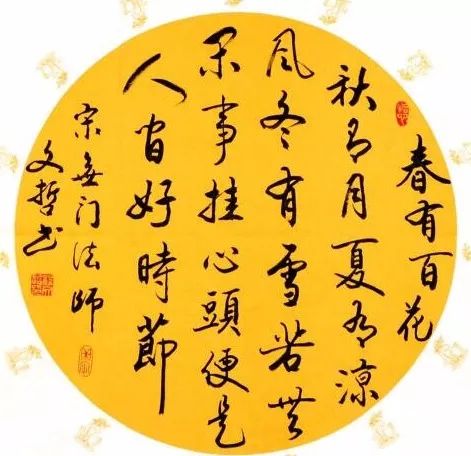 春有百花
秋有月夏有涼
风冬有雪若無
闲事挂心頭便是
人间好時節
宋無门法師
文哲书